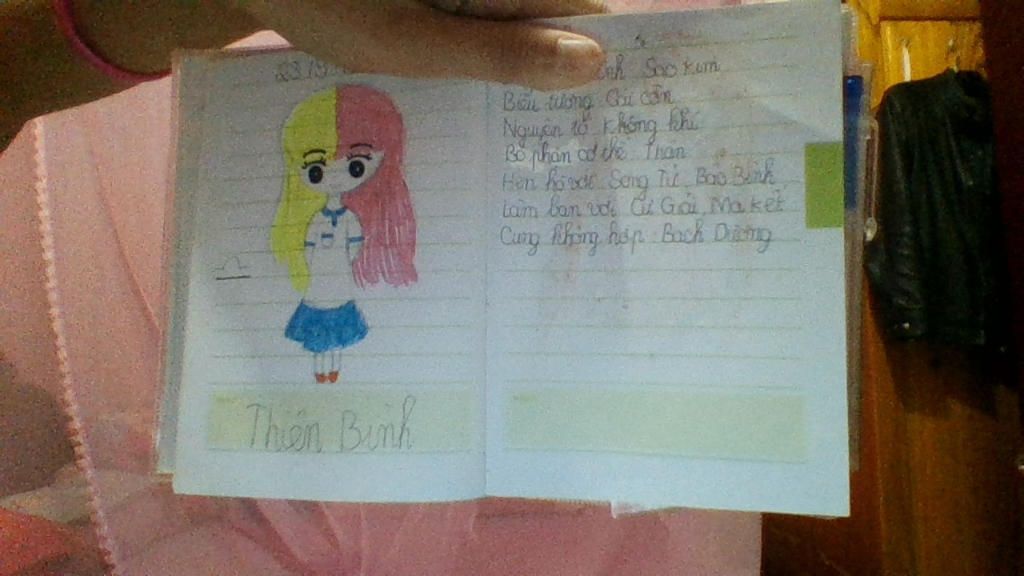 ♎
Thiên Bình
Sao Kim
Biểu tượng Cái cân
Nguyên tố Không khí
Bộ phận cơ thể Thận
Hẹn hò với: Song Tử, Bảo Bình
Làm bạn với Cự Giải, Ma kết
Cung không hợp: Bạch Dương